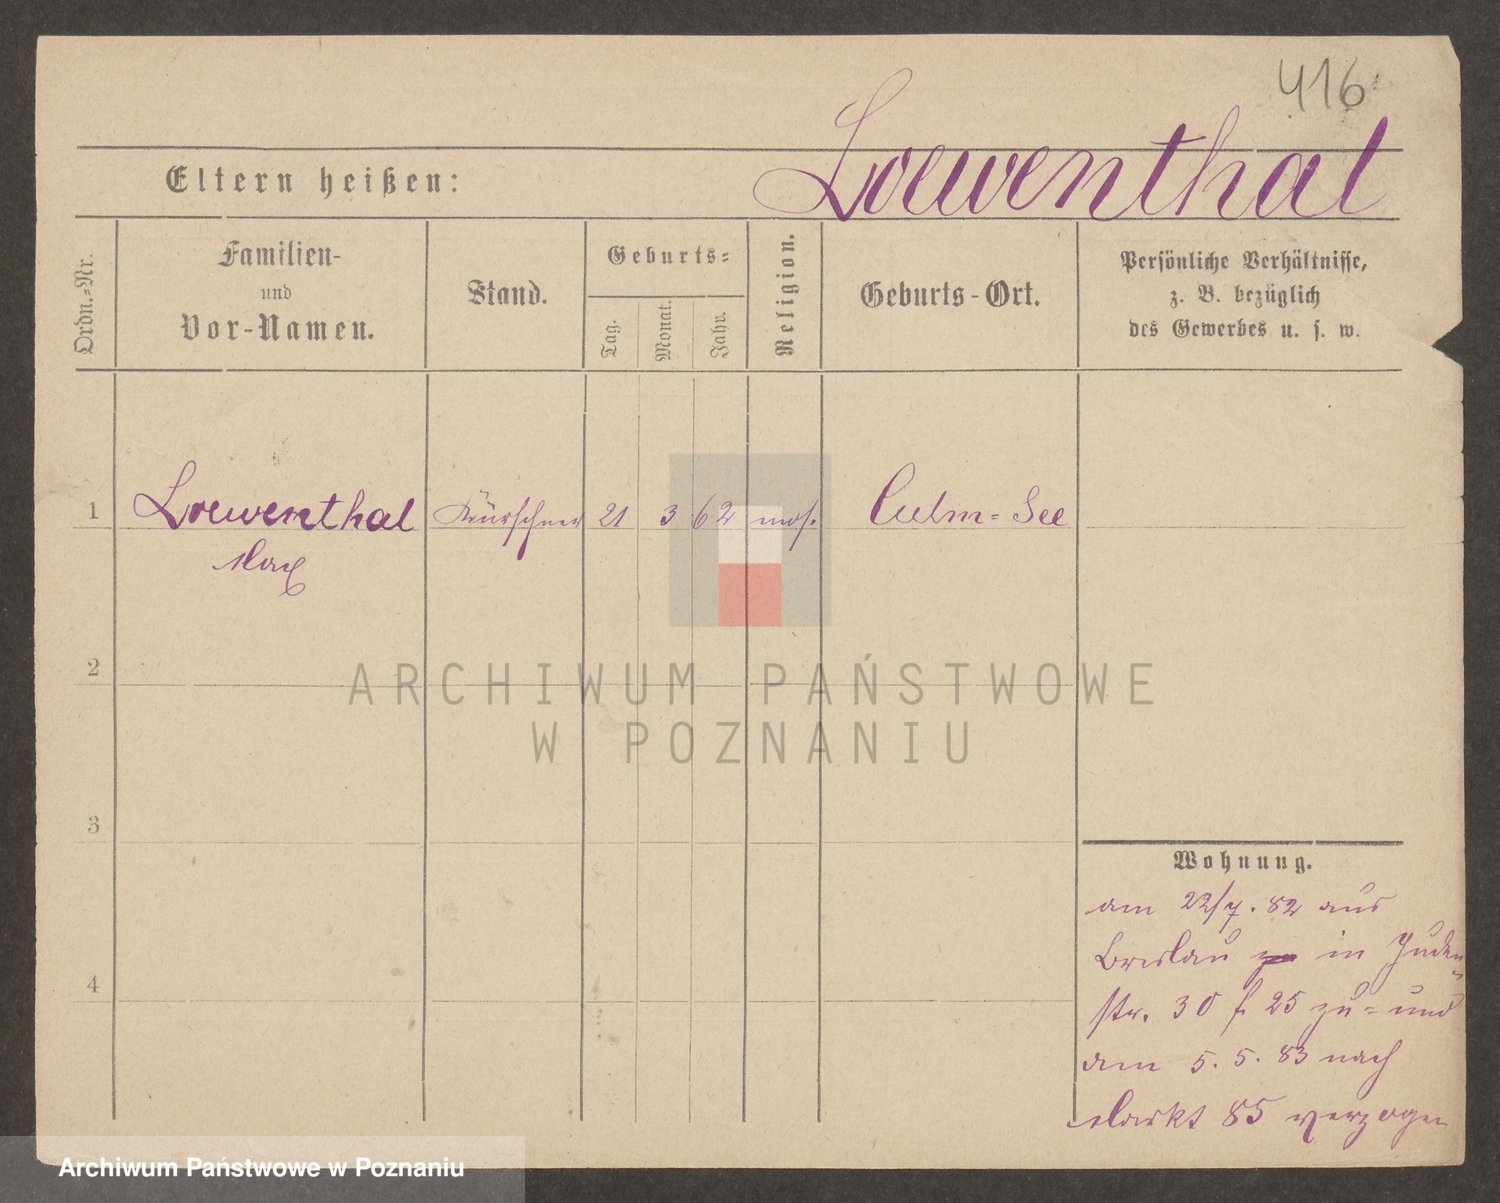 416
Loewenthal
Eltern heißen:
Ordn.-Nr.
Familien-
und
Vor-Namen.
Stand.
Geburts-
Tag.
Monat.
Jahr.
Religion.
Geburts-Ort.
Persönliche Verhältnisse,
z. B. bezüglich
des Gewerbes u. s. w.
1 Loewenthal Kürschner 21 3 62 mos. Culm-See
Max
2
ARCHIWUM PAŃSTWOWE
W POZNANIU
3
4
Wohnung.
am 22/7. 82 aus
Breslau in Juden
str. 30 f. 25 zu- und
am 5. 5. 83 nach
Markt 85 verzogen
Archiwum Państwowe w Poznaniu